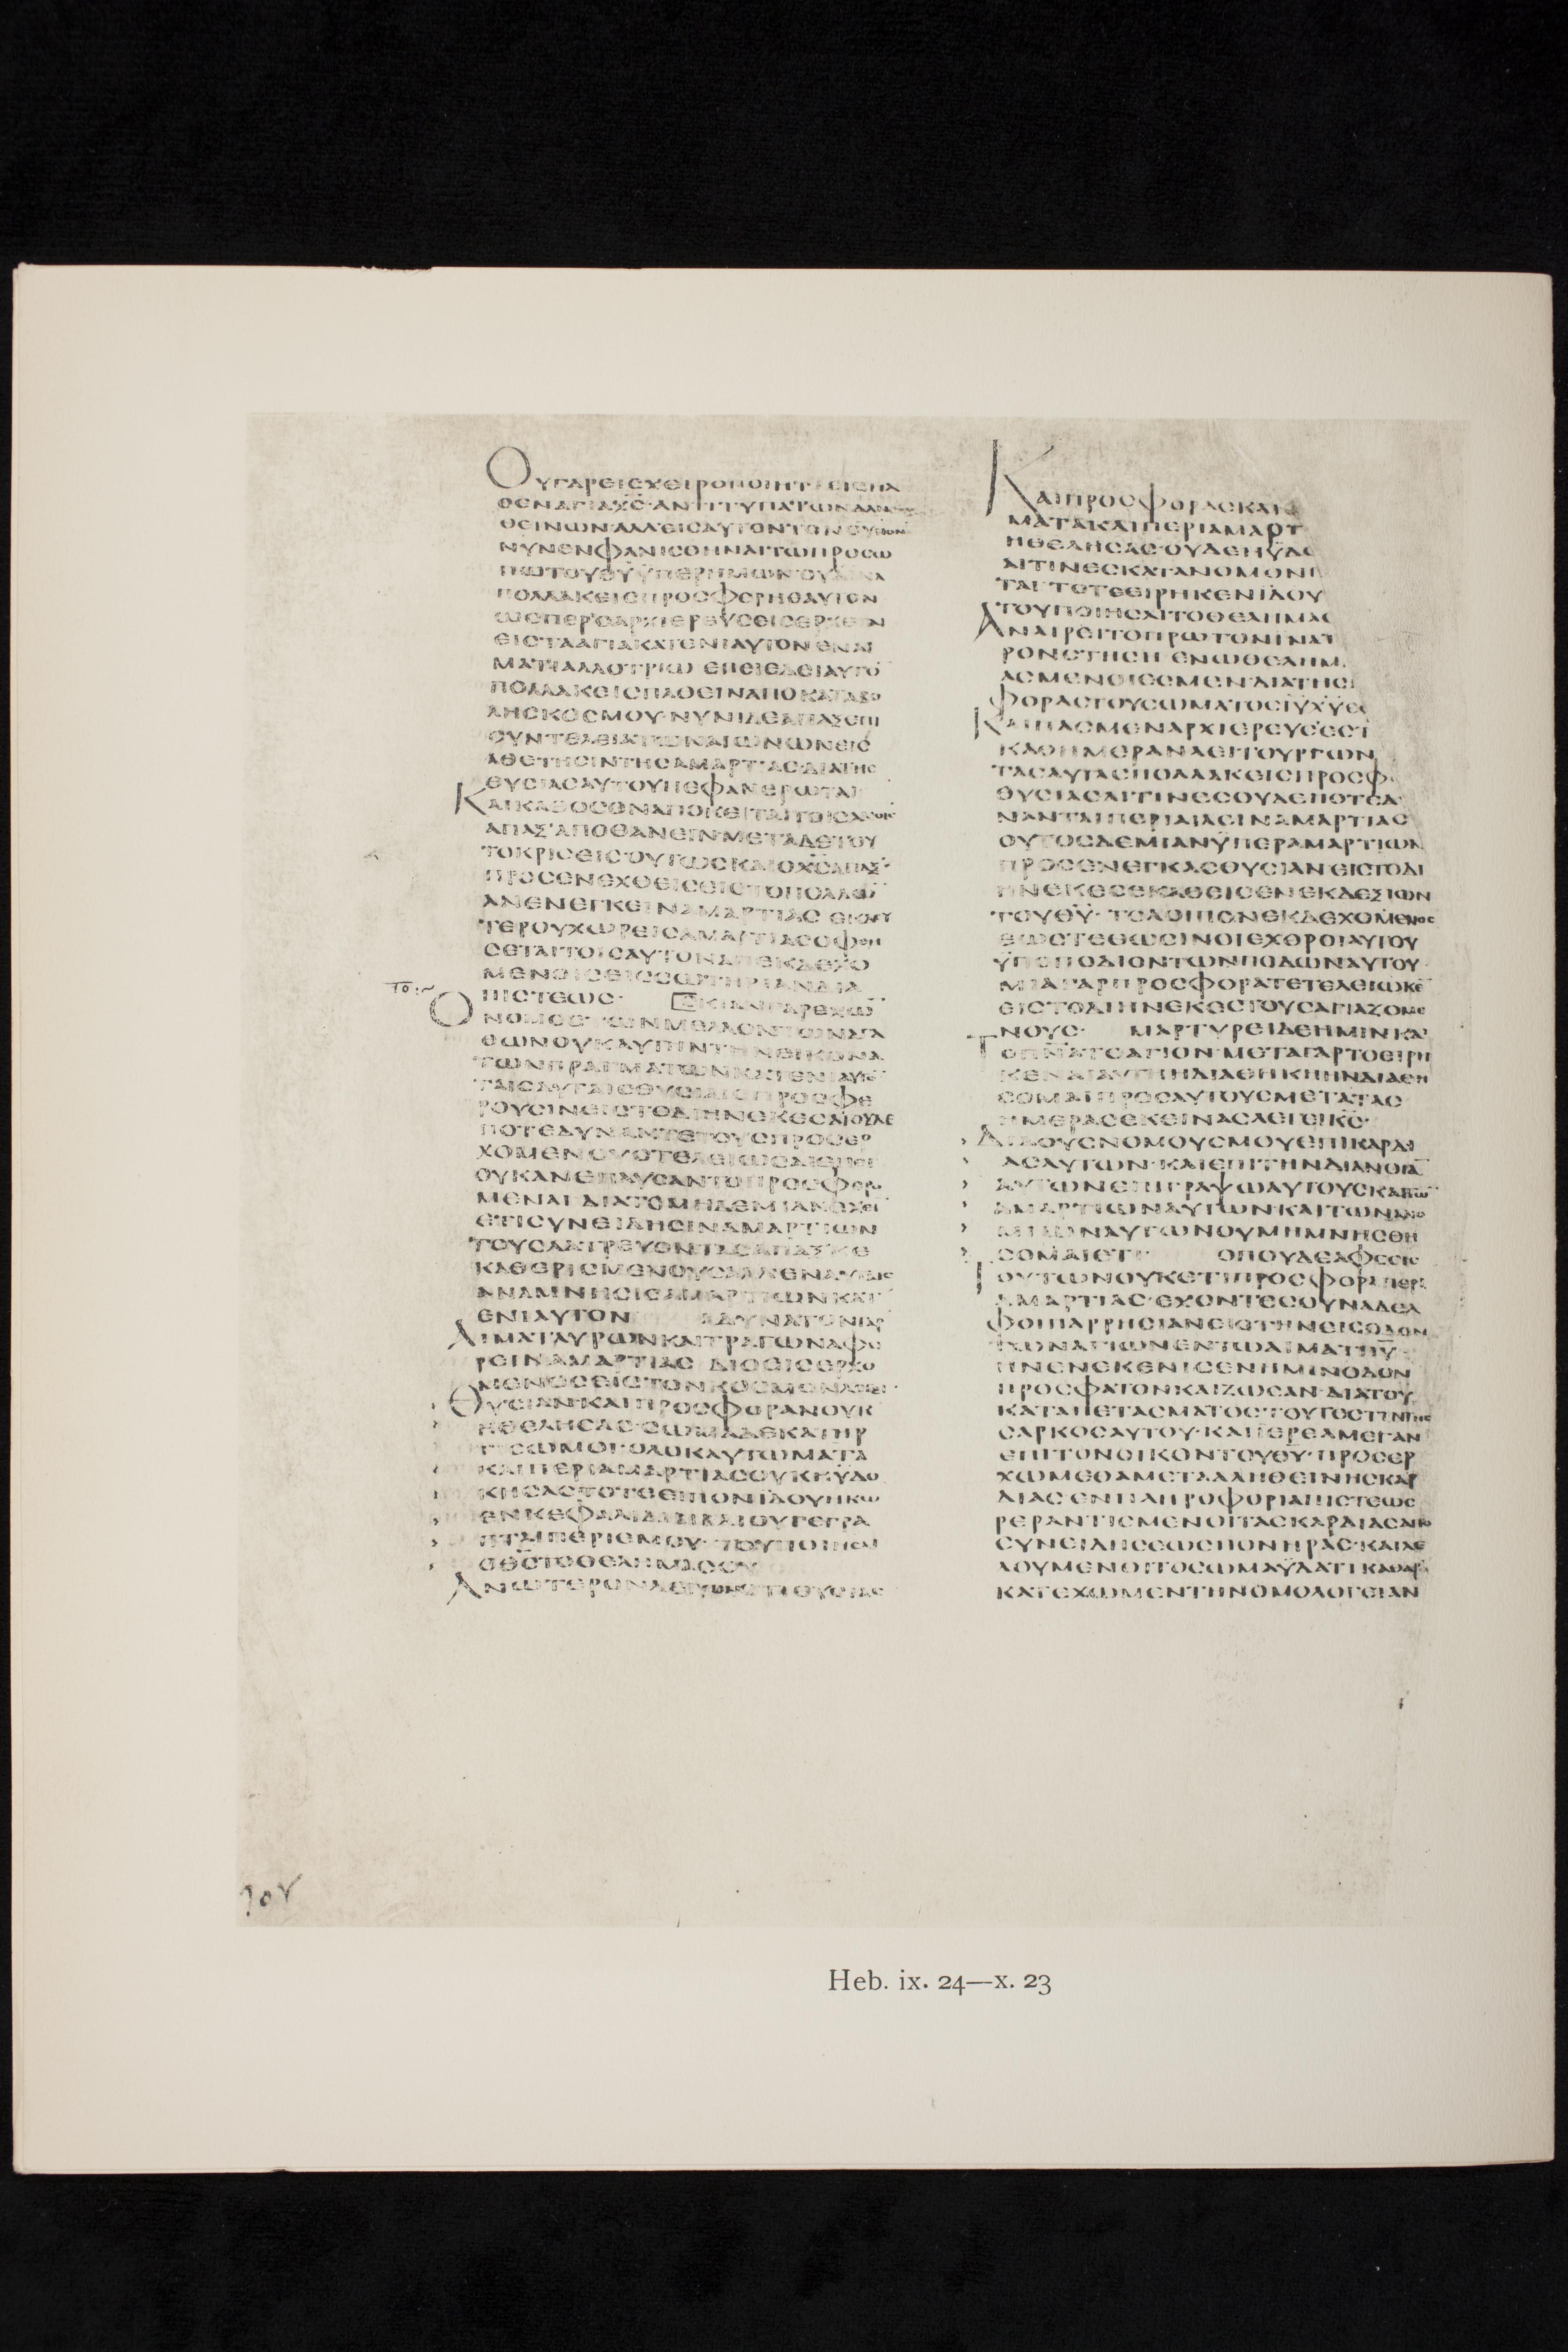 ΟΥΓΑΡΕΙϹΧΕΙΡΟΠΟΙΗΤ ΕΙϹΗΛ
ΘΕΝΑΓΙΑΧϹ·ΑΝΤΙΤΥΠΑΤΩΝΑΛΗ
ΘΕΙΝΩΝ·ΑΛΛΕΙϹΑΥΤΟΝΤΟΝΟΥΡΑΝΟΝ
ΝΥΝΕΝΦΑΝΙϹΘΗΝΑΙΤΩΠΡΟϹΩ
ΠΩΤΟΥΘΥΫΠΕΡΗΜΩΝ·ΟΥΔΙΝΑ
ΠΟΛΛΑΚΕΙϹΠΡΟϹΦΕΡΗΕΑΥΤΟΝ
ΩϹΠΕΡΟΑΡΧΙΕΡΕΥϹΕΙϹΕΡΧΕΤΑΙ
ΕΙϹΤΑΑΓΙΑΚΑΤΕΝΙΑΥΤΟΝΕΝΑΙ
ΜΑΤΙΑΛΛΟΤΡΙΩ ΕΠΕΙΕΔΕΙΑΥΤΟ
ΠΟΛΛΑΚΕΙϹΠΑΘΕΙΝΑΠΟΚΑΤΑΒΟ
ΛΗϹΚΟϹΜΟΥ·ΝΥΝΙΔΕΑΠΑΞΕΠΙ
ϹΥΝΤΕΛΕΙΑΤΩΝΑΙΩΝΩΝΕΙϹ
ΑΘΕΤΗϹΙΝΤΗϹΑΜΑΡΤΙΑϹΔΙΑΤΗϹ
ΘΥϹΙΑϹΑΥΤΟΥΠΕΦΑΝΕΡΩΤΑΙ
ΚΑΙΚΑΘΟϹΟΝΑΠΟΚΕΙΤΑΙΤΟΙϹΑΝΟΙϹ
ΑΠΑΞΑΠΟΘΑΝΕΙΝ·ΜΕΤΑΔΕΤΟΥ
ΤΟΚΡΙϹΕΙϹ·ΟΥΤΩϹΚΑΙΟΧϹΑΠΑΞ
ΠΡΟϹΕΝΕΧΘΕΙϹΕΙϹΤΟΠΟΛΛΩ
ΑΝΕΝΕΓΚΕΙΝΑΜΑΡΤΙΑϹ ΕΚΔΕΥ
ΤΕΡΟΥΧΩΡΕΙϹΑΜΑΡΤΙΑϹΟΦΘΗ
ϹΕΤΑΙΤΟΙϹΑΥΤΟΝΑΠΕΚΔΕΧΟ
ΜΕΝΟΙϹΕΙϹϹΩΤΗΡΙΑΝΔΙΑ
ΠΙϹΤΕΩϹ· ϹΚΙΑΝΓΑΡΕΧΩ
ΟΝΟΜΟϹΤΩΝΜΕΛΛΟΝΤΩΝΑΓΑ
ΘΩΝΟΥΚΑΥΤΗΝΤΗΝΕΙΚΟΝΑ
ΤΩΝΠΡΑΓΜΑΤΩΝΚΑΤΕΝΙΑΥΤΟ
ΤΑΙϹΑΥΤΑΙϹΘΥϹΙΑΙϹΠΡΟϹΦΕ
ΡΟΥϹΙΝΕΙϹΤΟΔΙΗΝΕΚΕϹΑΙΟΥΔΕ
ΠΟΤΕΔΥΝΑΝΤΕΤΟΥϹΠΡΟϹΕΡ
ΧΟΜΕΝΟΥϹΤΕΛΕΙΩϹΑΙΕΠΕΙ
ΟΥΚΑΝΕΠΑΥϹΑΝΤΟΠΡΟϹΦΕΡΟ
ΜΕΝΑΙ ΔΙΑΤΟΜΗΔΕΜΙΑΝΕΧΕΙ
ΕΤΙϹΥΝΕΙΔΗϹΙΝΑΜΑΡΤΙΩΝ
ΤΟΥϹΛΑΤΡΕΥΟΝΤΑϹΑΠΑΞΚΕ
ΚΑΘΕΡΙϹΜΕΝΟΥϹΑΛΛΕΝΑΥΤΑΙϹ
ΑΝΑΜΝΗϹΙϹΑΜΑΡΤΙΩΝΚΑΤ
ΕΝΙΑΥΤΟΝ ΑΔΥΝΑΤΟΝΓΑΡ
ΑΙΜΑΤΑΥΡΩΝΚΑΙΤΡΑΓΩΝΑΦΕ
ΡΕΙΝΑΜΑΡΤΙΑϹ ΔΙΟΕΙϹΕΡΧΟ
ΜΕΝΟϹΕΙϹΤΟΝΚΟϹΜΟΝΛΕΓΕΙ·
ΘΥϹΙΑΝΚΑΙΠΡΟϹΦΟΡΑΝΟΥΚ
ΗΘΕΛΗϹΑϹ·ϹΩΜΑΔΕΚΑΤΗΡ
ΤΙϹΩΜΟΙ·ΟΛΟΚΑΥΤΩΜΑΤΑ
ΚΑΙΠΕΡΙΑΜΑΡΤΙΑϹΟΥΚΗΫΔΟ
ΚΗϹΑϹΤΟΤΕΕΙΠΟΝΙΔΟΥΗΚΩ
ΕΝΚΕΦΑΛΙΔΙΒΙΒΛΙΟΥΓΕΓΡΑ
ΠΤΑΙΠΕΡΙΕΜΟΥ·ΤΟΥΠΟΙΗϹΑΙ
ΟΘϹΤΟΘΕΛΗΜΑϹΟΥ
ΑΝΩΤΕΡΟΝΛΕΓΩΝΟΤΙΘΥϹΙΑϹ
ΚΑΙΠΡΟϹΦΟΡΑϹΚΑΙΟ
ΜΑΤΑΚΑΙΠΕΡΙΑΜΑΡΤ
ΗΘΕΛΗϹΑϹ·ΟΥΔΕΗΫΔΟ
ΑΙΤΙΝΕϹΚΑΤΑΝΟΜΟΝΠ
ΤΑΙ·ΤΟΤΕΕΙΡΗΚΕΝΙΔΟΥ
ΤΟΥΠΟΙΗϹΑΙΤΟΘΕΛΗΜΑϹ
ΑΝΑΙΡΕΙΤΟΠΡΩΤΟΝΙΝΑΤ
ΡΟΝϹΤΗϹΗ ΕΝΩΘΕΛΗΜ
ΑϹΜΕΝΟΙΕϹΜΕΝΔΙΑΤΗϹ
ΦΟΡΑϹΤΟΥϹΩΜΑΤΟϹΙΥΧΥ
ΚΑΙΠΑϹΜΕΝΑΡΧΙΕΡΕΥϹΕϹΤ
ΚΑΘΗΜΕΡΑΝΛΕΙΤΟΥΡΓΩΝ
ΤΑϹΑΥΤΑϹΠΟΛΛΑΚΕΙϹΠΡΟϹΦ
ΘΥϹΙΑϹΑΙΤΙΝΕϹΟΥΔΕΠΟΤΕΔ
ΝΑΝΤΑΙΠΕΡΙΑΙΛΕΙΝΑΜΑΡΤΙΑϹ
ΟΥΤΟϹΔΕΜΙΑΝΫΠΕΡΑΜΑΡΤΙΩΝ
ΠΡΟϹΕΝΕΓΚΑϹΘΥϹΙΑΝΕΙϹΤΟΔΙ
ΗΝΕΚΕϹΕΚΑΘΕΙϹΕΝΕΚΔΕΞΙΩΝ
ΤΟΥΘΥ· ΤΟΛΟΙΠΟΝΕΚΔΕΧΟΜΕΝΟϹ
ΕΩϹΤΕΘΩϹΙΝΟΙΕΧΘΡΟΙΑΥΤΟΥ
ΫΠΟΠΟΔΙΟΝΤΩΝΠΟΔΩΝΑΥΤΟΥ·
ΜΙΑΓΑΡΠΡΟϹΦΟΡΑΤΕΤΕΛΕΙΩΚΕ
ΕΙϹΤΟΔΙΗΝΕΚΕϹΤΟΥϹΑΓΙΑΖΟΜΕ
ΝΟΥϹ· ΜΑΡΤΥΡΕΙΔΕΗΜΙΝΚΑΙ
ΤΟΠΝΑΤΟΑΓΙΟΝ·ΜΕΤΑΓΑΡΤΟΕΙΡΗ
ΚΕΝΑΙΑΥΤΗΗΔΙΑΘΗΚΗΗΝΔΙΑΘΗ
ϹΟΜΑΙΠΡΟϹΑΥΤΟΥϹΜΕΤΑΤΑϹ
ΗΜΕΡΑϹΕΚΕΙΝΑϹΛΕΓΕΙΚϹ·
ΔΙΔΟΥϹΝΟΜΟΥϹΜΟΥΕΠΙΚΑΡΔΙ
ΑϹΑΥΤΩΝ·ΚΑΙΕΠΙΤΗΝΔΙΑΝΟΙΑ
ΑΥΤΩΝΕΠΙΓΡΑΨΩΑΥΤΟΥϹΚΑΙΤΩ
ΑΜΑΡΤΙΩΝΑΥΤΩΝΚΑΙΤΩΝΑΝΟ
ΜΙΩΝΑΥΤΩΝΟΥΜΗΜΝΗϹΘΗ
ϹΟΜΑΙΕΤΙ· ΟΠΟΥΔΕΑΦΕϹΙϹ
ΤΟΥΤΩΝΟΥΚΕΤΙΠΡΟϹΦΟΡΑΠΕΡΙ
ΑΜΑΡΤΙΑϹ·ΕΧΟΝΤΕϹΟΥΝΑΔΕΛ
ΦΟΙΠΑΡΡΗϹΙΑΝΕΙϹΤΗΝΕΙϹΟΔΟΝ
ΤΩΝΑΓΙΩΝΕΝΤΩΑΙΜΑΤΙΙΥ·
ΗΝΕΝΕΚΕΝΙϹΕΝΗΜΙΝΟΔΟΝ
ΠΡΟϹΦΑΤΟΝΚΑΙΖΩϹΑΝ·ΔΙΑΤΟΥ
ΚΑΤΑΠΕΤΑϹΜΑΤΟϹ·ΤΟΥΤΕϹΤΙΝΤΗϹ
ϹΑΡΚΟϹΑΥΤΟΥ·ΚΑΙΙΕΡΕΑΜΕΓΑΝ
ΕΠΙΤΟΝΟΙΚΟΝΤΟΥΘΥ·ΠΡΟϹΕΡ
ΧΩΜΕΘΑΜΕΤΑΑΛΗΘΕΙΝΗϹΚΑΡ
ΔΙΑϹ ΕΝΠΛΗΡΟΦΟΡΙΑΠΙϹΤΕΩϹ
ΡΕΡΑΝΤΙϹΜΕΝΟΙΤΑϹΚΑΡΔΙΑϹΑΠΟ
ϹΥΝΕΙΔΗϹΕΩϹΠΟΝΗΡΑϹ·ΚΑΙΛΕ
ΛΟΥΜΕΝΟΙΤΟϹΩΜΑΫΔΑΤΙΚΑΘΑΡΩ
ΚΑΤΕΧΩΜΕΝΤΗΝΟΜΟΛΟΓΕΙΑΝ
Heb. ix. 24—x. 23